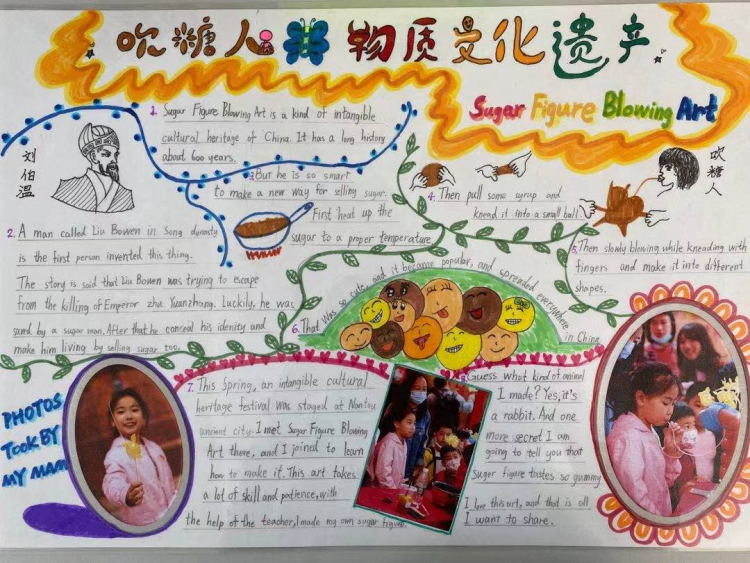 吹糖人 物质文化遗产
Sugar Figure Blowing Art
1. Sugar Figure Blowing Art is a kind of intangible
cultural heritage of China. It has a long history
about 600 years.
刘伯温
2. A man called Liu Bowen in Song dynasty
is the first person invented this thing.
The story is said that Liu Bowen was trying to escape
from the killing of Emperor zhu Yuanzhang. Luckily, he was
saved by a sugar man. After that he conceal his idenity and
make him living by selling sugar too.
3. But he is so smart
to make a new way for selling sugar.
First heat up the
sugar to a proper temperature
4. Then pull some syrup and
knead it into a small ball
吹糖人
5. Then slowly blowing while kneading with
fingers and make it into different
shapes.
6. That was so cute, and it became popular, and spreaded everywhere
in China.
PHOTOS
TOOK BY
MY MAM
7. This Spring, an intangible cultural
heritage festival was staged at Nantou
ancient city. I met Sugar Figure Blowing
Art there, and I joined to learn
how to make it. This art takes
a lot of skill and patience, with
the help of the teacher, I made my own sugar figure.
8. Guess what kind of animal
I made? Yes, it's
a rabbit. And one
more secret I am
going to tell you that
sugar figure tastes so gummy
I love this art, and that is all
I want to share.